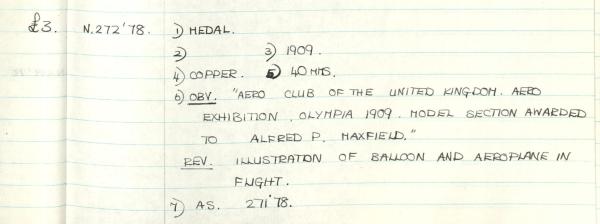 £3. N.272'78. 1) MEDAL.
2) 3) 1909.
4) COPPER. 5) 40 MMS.
6) OBV. "AERO CLUB OF THE UNITED KINGDOM. AERO
EXHIBITION, OLYMPIA 1909. MODEL SECTION AWARDED
TO ALFRED P. MAXFIELD."
REV. ILLUSTRATION OF BALLOON AND AEROPLANE IN
FLIGHT.
7) AS. 271'78.